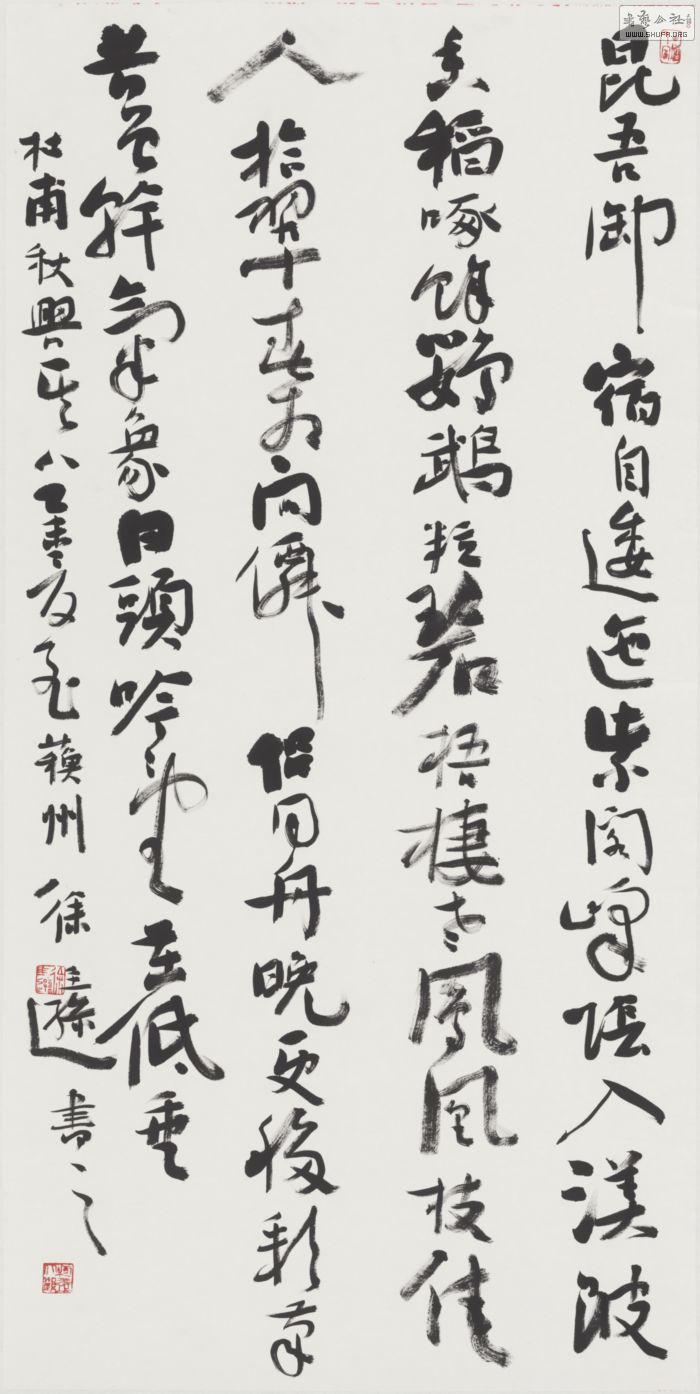 昆吾御宿自逶迤紫閣峰陰入渼陂
香稻啄餘鸚鵡粒碧梧棲老鳳凰枝佳
人拾翠春相問僊侶同舟晚更移彩筆
昔曾幹氣象白頭吟望苦低垂
杜甫秋興其八乙未夏至蘇州徐書之
書藝公社
WWW.SHUFA.ORG